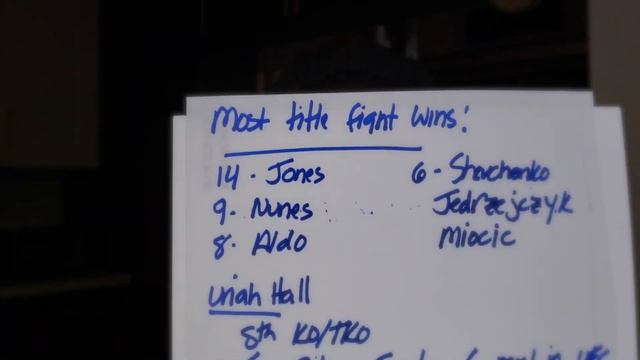 Most title fight wins:
14 - Jones
9 - Nunes
8 - Aldo
6 - Shevchenko
Jedrzejczyk
Miocic
Uriah Hall
8th KO/TKO